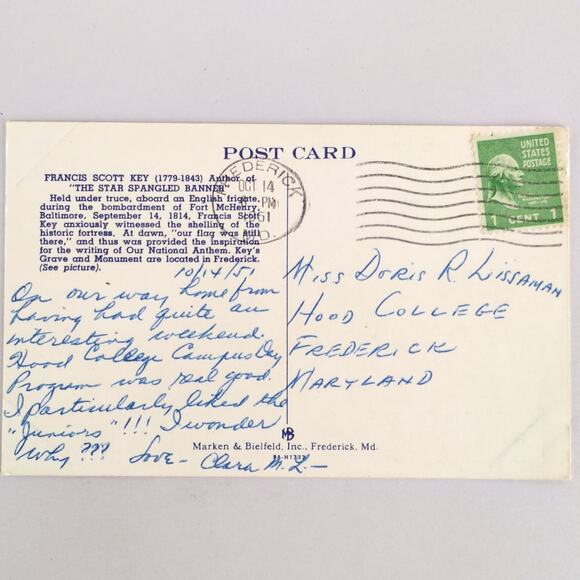 POST CARD
FRANCIS SCOTT KEY (1779-1843) Author of
"THE STAR SPANGLED BANNER"
Held under truce, aboard an English frigate,
during the bombardment of Fort McHenry,
Baltimore, September 14, 1814, Francis Scott
Key anxiously witnessed the shelling of the
historic fortress. At dawn, "our flag was still
there," and thus was provided the inspiration
for the writing of Our National Anthem. Key's
Grave and Monument are located in Frederick.
(See picture).
10/14/51
On our way home from
having had quite an
interesting weekend.
Hood College Campus Day
Program was real good.
I particularly liked the
"Juniors"!!! I wonder
why??? Love - Clara M. L. -
FREDERICK
OCT 14
PM
UNITED
STATES
POSTAGE
1 CENT 1
MISS DORIS R. LISSAMAN
HOOD COLLEGE
FREDERICK
MARYLAND
MB
Marken & Bielfeld, Inc., Frederick, Md.